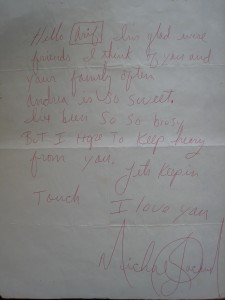 Hello im glad were
friends I think of you and
your family often
is so sweet.
Ive been so so busy
But I hope To Keep heary
from you,
Lets Keepin
Touch I love you
Michael